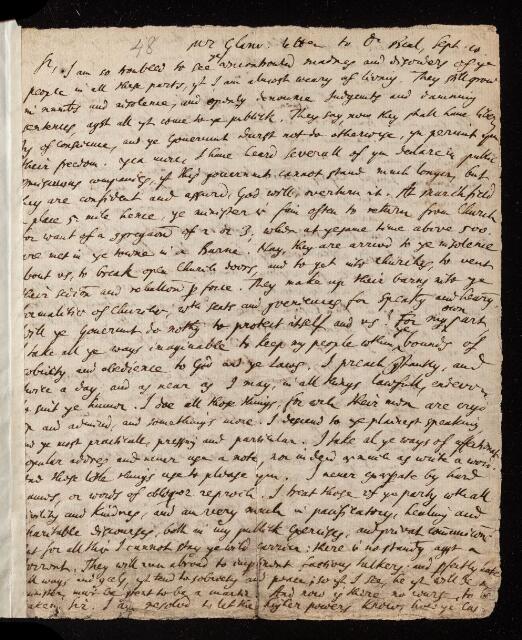 48 Mr Glanv. letter to Dr Beal, Sept. 10
Sr, I am so troubled to see ye unbounded madness and disorders of ye
people in all these parts, yt I am almost weary of living. They still grow
in numbers and insolence, and openly denounce Judgmts and damning
sentences, agst all yt come to ye publick. They say now they shall have liberty
of Conscience, and ye Governmt durst not do otherwise, yn permit ym
their freedom. yea more, I have heard severall of ym declare in publick
companies, yt this government cannot stand much longer, but
they are confident and assurd, God will overturn it. At Marshfield
a place 5 mile hence, ye minister is fain often to return from Church
for want of a congregation of 2 or 3, when at ye same time above 500
are met in ye towne in a Barne. Nay, they are arrived to ye insolence
about us, to break open Church doors, and to get into churches, to vent
their sedition and rebellion p force. They make up their barns into ye
formalities of Churches, wth seats and for speaking and hearing.
will ye Governmt do nothing to protect itself and us? For my own part,
I take all ye ways imaginable to keep my people within ye bounds of
sobriety and obedience to God and ye Laws. I preach constantly, and
twice a day, and as near as I may, in all things lawfull, endeavor
to suit ye humor. I doe all those things, for wch their men are cryd
up and admired, and something more. I descend to ye plainest speaking,
and ye most practicall, pressing and particular. I take al ye ways of affectionate
popular address, and never use a note, nor indeed so much as write a word.
And these little things use to please ym. I never exasperate by hard
names, or words of obloquy or reproch. I treat those of ye party wth all
civility and kindness, and am very much in pacificatory, healing and
charitable discourses, both in my publick Exercises, and private Communion.
But for all this I cannot stay ye wild carriere: there is no standing agst a
torrent. They will run abroad to impudent factious talkers, and
all ways, yt tend to sobriety and peace; so yt I see, he yt will be a
minister, must be sure to be a martyr. And now if there no cure to be
taken, Sr, I am resolved to let the higher powers know how ye case